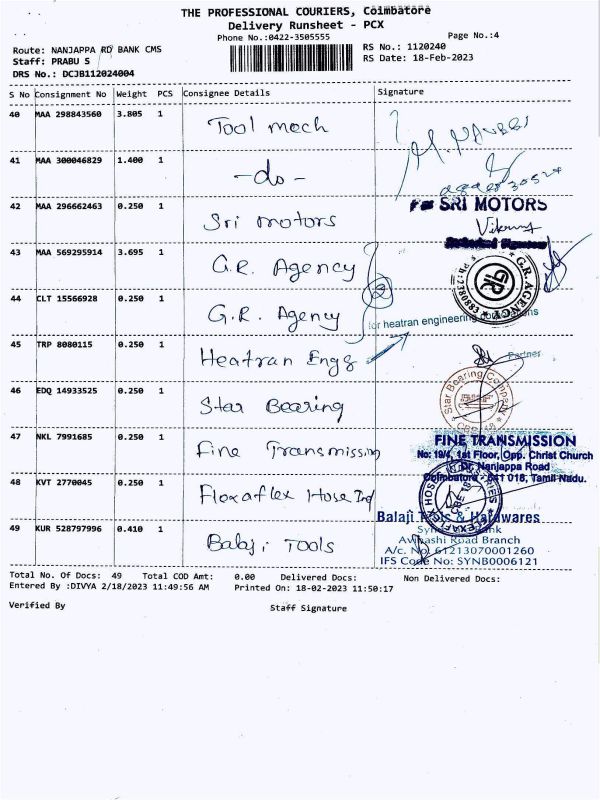 THE PROFESSIONAL COURIERS, Coimbatore
Delivery Runsheet - PCX
Phone No.:0422-3505555
Page No.:4
Route: NANJAPPA RD BANK CMS
RS No.: 1120240
Staff: PRABU S
RS Date: 18-Feb-2023
DRS No.: DCJB112024004
S No Consignment No Weight PCS Consignee Details Signature
40 MAA 298843560 3.805 1 Tool mech
41 MAA 300046829 1.400 1 -do-
42 MAA 296662463 0.250 1 Sri motors
SRI MOTORS
43 MAA 569295914 3.695 1 G.R. Agency
G.R. AGENCY
GR
44 CLT 15566928 0.250 1 G.R. Agency
2
for heatran engineering
45 TRP 8080115 0.250 1 Heatran Engg
Partner
46 EDQ 14933525 0.250 1 Star Bearing
Star Bearing Company
47 NKL 7991685 0.250 1 Fine Transmission
FINE TRANSMISSION
No: 19/4, 1st Floor, Opp. Christ Church
Dr. Nanjappa Road
Coimbatore - 641 018, Tamil Nadu.
48 KVT 2770045 0.250 1 Floxaflex Hose Ind
Balaji Tools & Hardwares
49 KUR 528797996 0.410 1 Balaji Tools
Avinashi Road Branch
A/c. No. 61213070001260
IFS Code No: SYNB0006121
Total No. Of Docs: 49 Total COD Amt: 0.00 Delivered Docs: Non Delivered Docs:
Entered By :DIVYA 2/18/2023 11:49:56 AM Printed On: 18-02-2023 11:50:17
Verified By Staff Signature